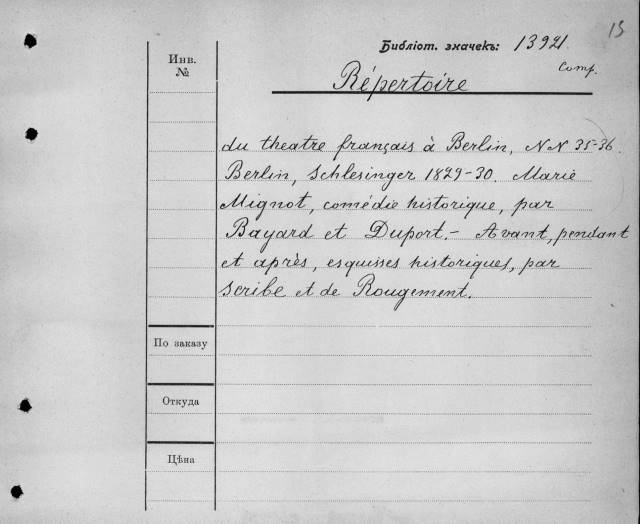 15
Библіот. значекъ: 13921.
Comp.
Инв.
№
Répertoire
du theatre français à Berlin, NN 35-36.
Berlin, Schlesinger 1829-30. Marie
Mignot, comédie historique, par
Bayard et Duport. - Avant, pendant
et après, esquisses historiques, par
Scribe et de Rougement.
По заказу
Откуда
Цѣна